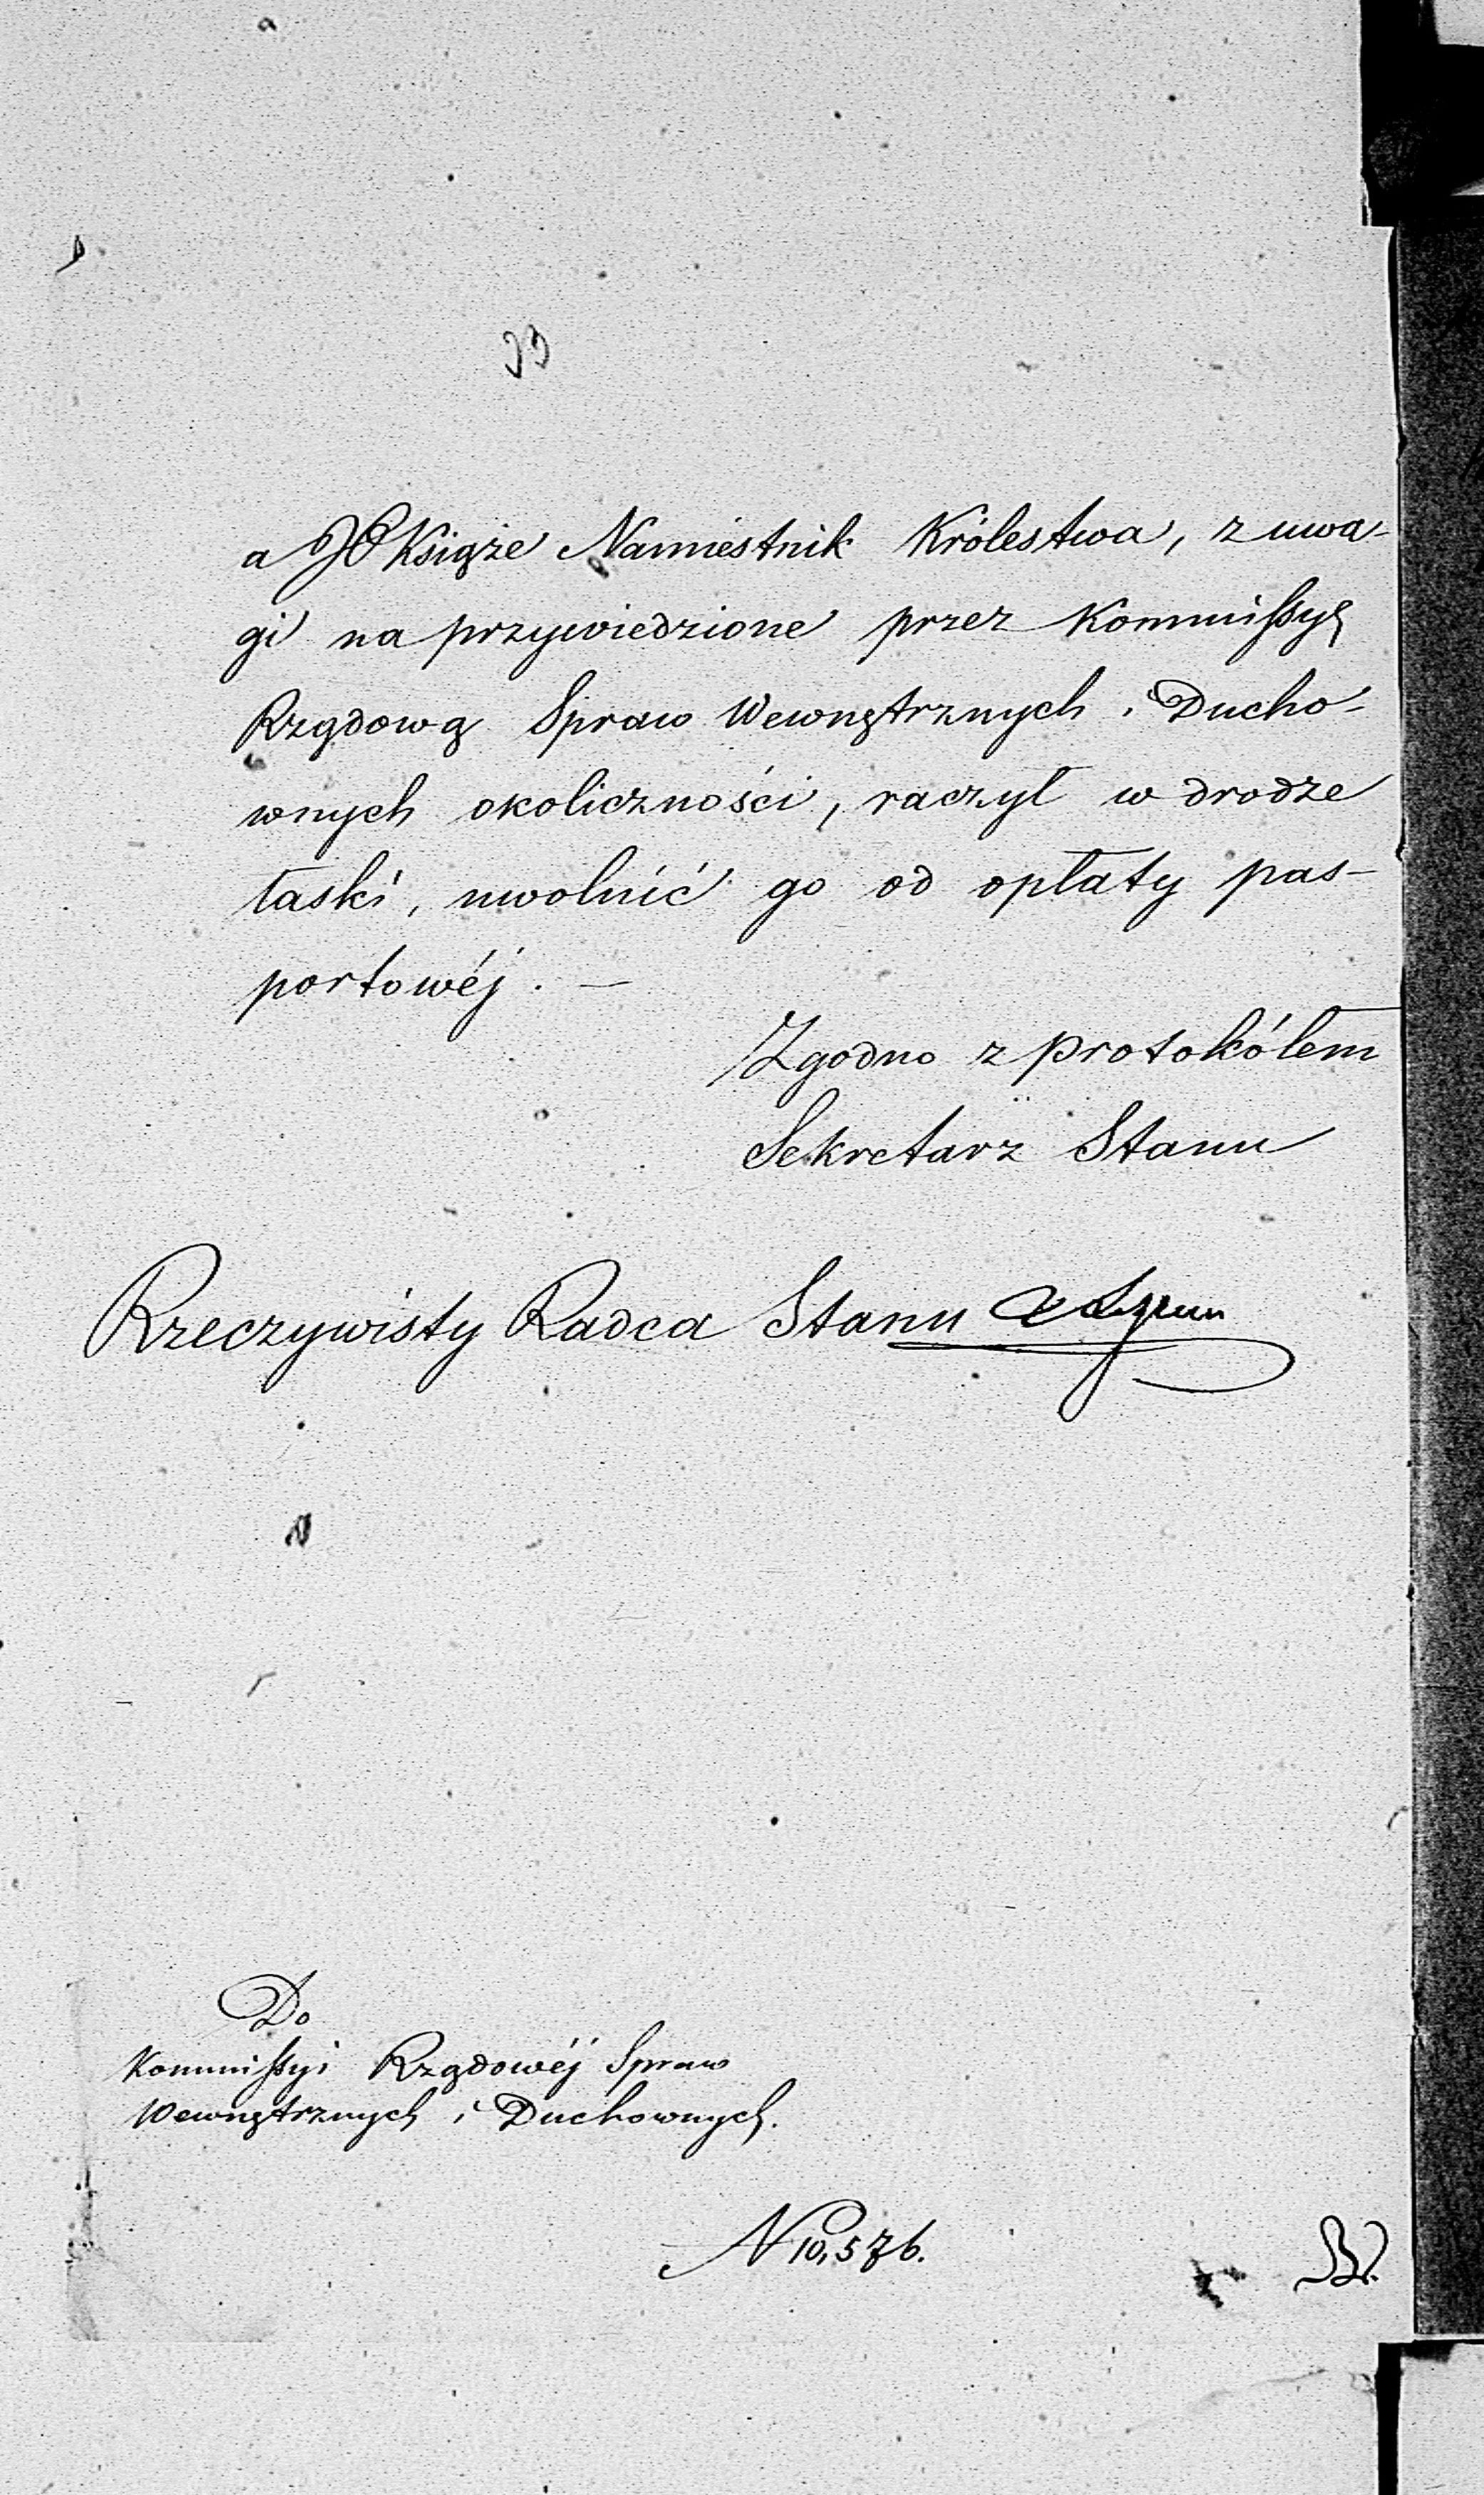 a JO Książe Namiestnik Królestwa, z uwa-
gi na przywiedzione przez Kommissyę
Rządową Spraw Wewnętrznych i Ducho-
wnych okoliczności, raczył w drodze
łaski, uwolnić go od opłaty pas-
portowéj. —
Zgodno z protokółem
Sekretarz Stanu
Rzeczywisty Radca Stanu
Do
Kommissyi Rządowéj Spraw
Wewnętrznych i Duchownych.
N 10,576.